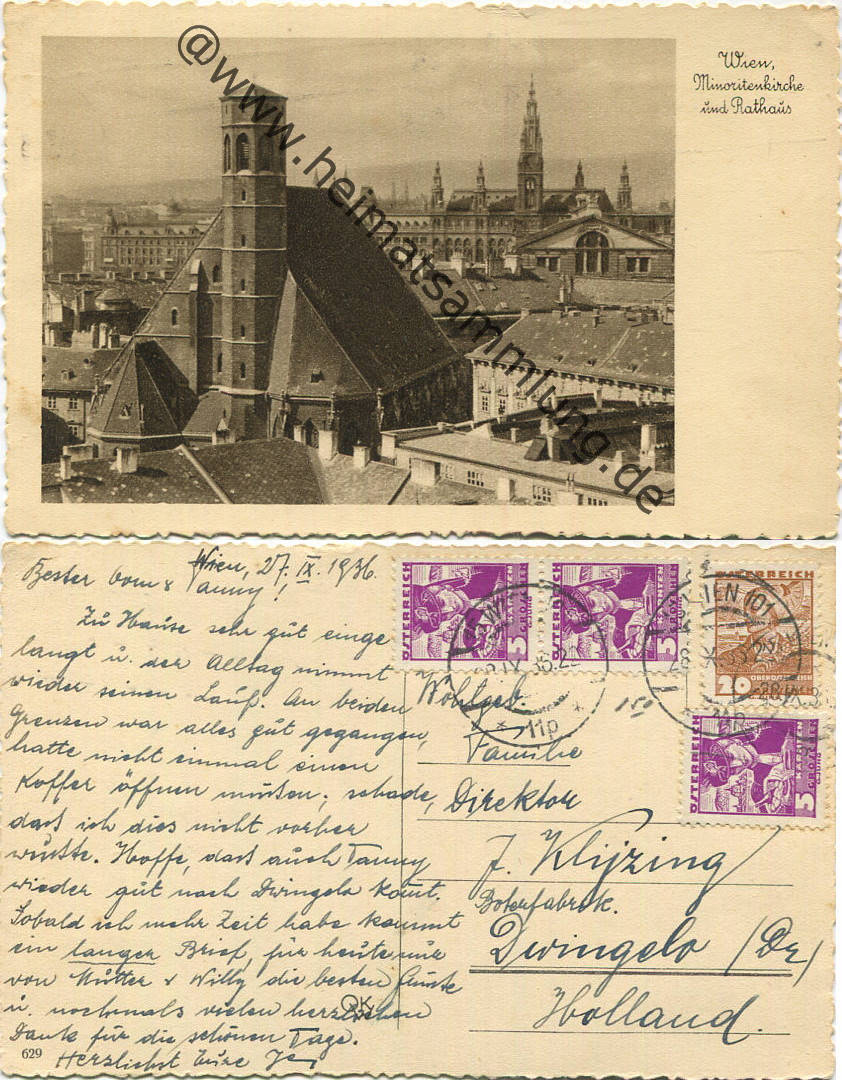 Wien,
Minoritenkirche
und Rathaus
@www.heimatsammlung.de
Wien, 27. IX. 1936.
Bester Oom &
Tanny!
Zu Hause sehr gut einge
langt u. der Alltag nimmt
wieder seinen Lauf. An beiden
Grenzen war alles gut gegangen,
hatte nicht einmal einen
Koffer öffnen müssen; schade,
dass ich dies nicht vorher
wusste. Hoffe, dass auch Tanny
wieder gut nach Dwingelo kommt.
Sobald ich mehr Zeit habe kommt
ein langer Brief, für heute nur
von Mutter & Willy die besten Grüsse
u. nochmals vielen herzlichen
Dank für die schönen Tage.
Herzlichst Eure
629
OK
ÖSTERREICH
KÄRNTEN
3 GROSCHEN
ÖSTERREICH
KÄRNTEN
3 GROSCHEN
ÖSTERREICH
20
OBERÖSTERREICH
ÖSTERREICH
3 GROSCHEN
WIEN 101
11p
Wohlgeb.
Familie
Direktor
J. Klijzing
Boterfabriek.
Dwingelo (Dr)
Holland.